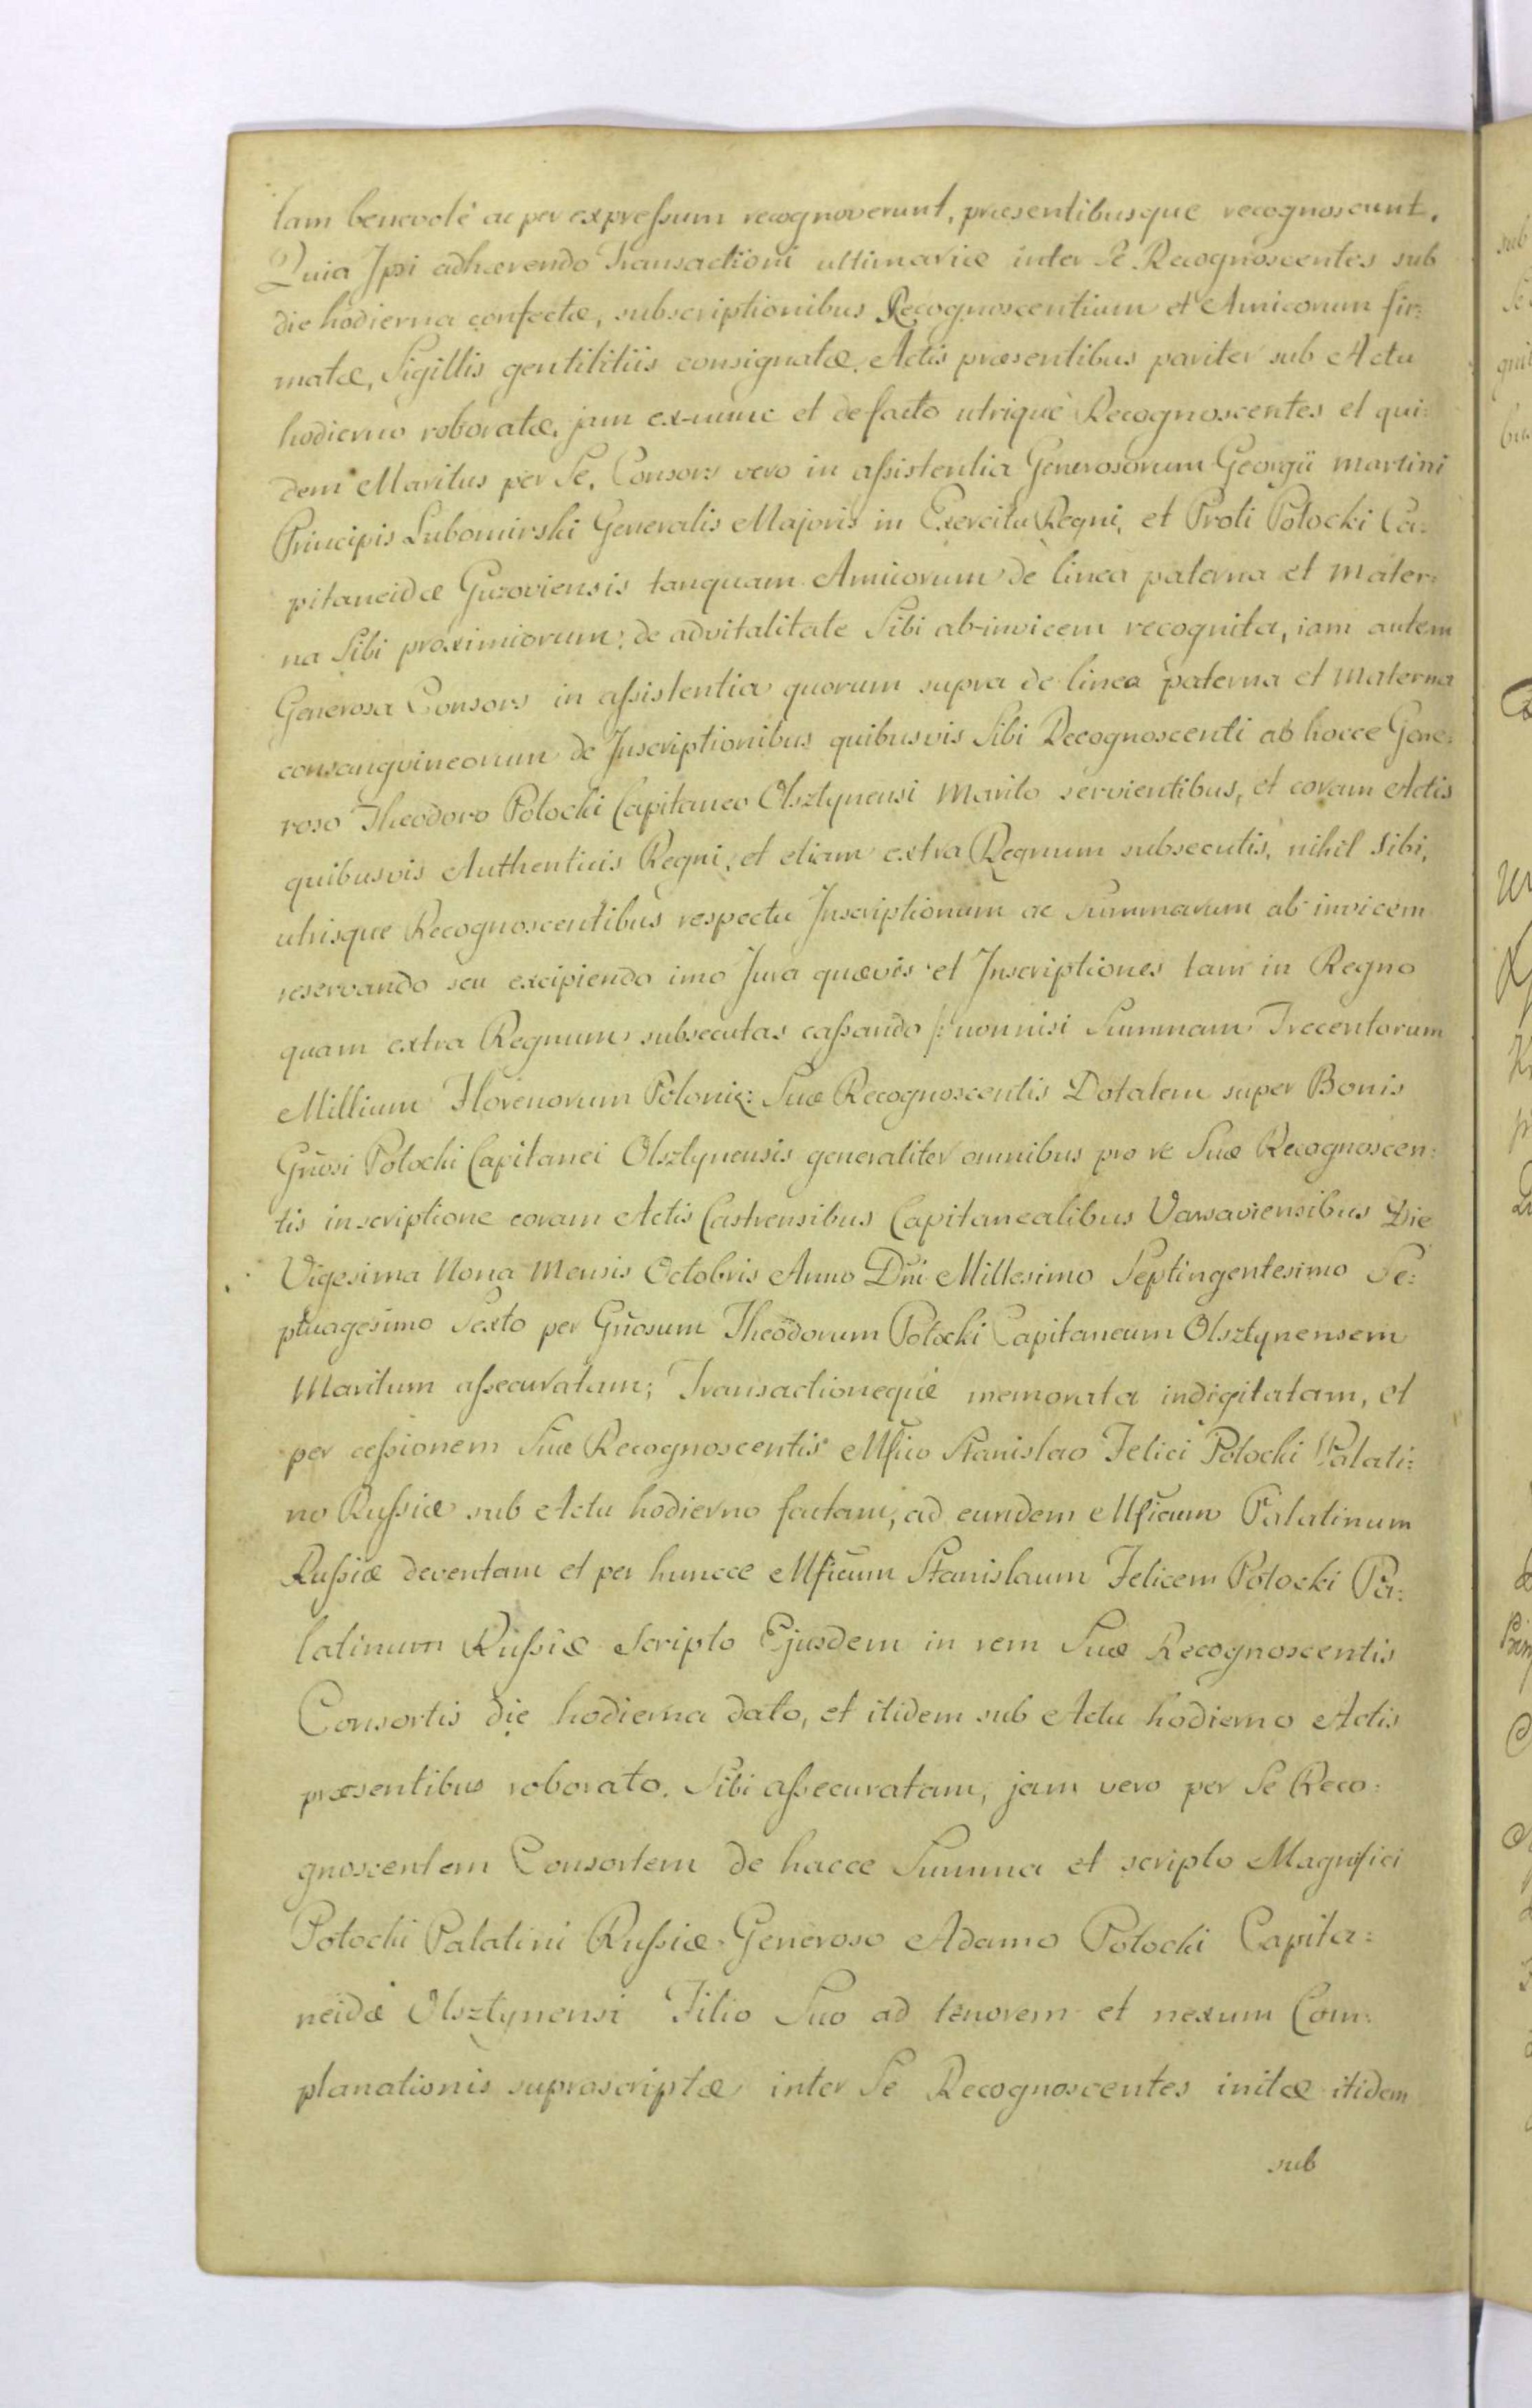 tam benevolè ac per expreſsum recognoverunt, præsentibusque recognoscunt.
Quia Ipsi adhærendo Transactioni ultimariæ inter Se Recognoscentes sub
die hodierna confectæ, subscriptionibus Recognoscentium et Amicorum fir:
matæ, Sigillis gentilitiis consignatæ, Actis præsentibus pariter sub Actu
hodierno roboratæ, jam ex-nunc et de facto utrique Recognoscentes et qui:
dem Maritus per Se, Consors vero in aſsistentia Generosorum Georgii Martini
Principis Lubomirski Generalis Majoris in Exercitu Regni, et Proti Potocki Ca:
pitaneidæ Guzoviensis tanquam Amicorum de linea paterna et mater:
na Sibi proximiorum; de advitalitate Sibi ab-invicem recognita, iam autem
Generosa Consors in aſsistentia quorum supra de linea paterna et materna
consangvineorum de Inscriptionibus quibusvis Sibi Recognoscenti ab hocce Gene:
roso Theodoro Potocki Capitaneo Olsztynensi Marito servientibus, et coram Actis
quibusvis Authenticis Regni, et etiam extra Regnum subsecutis, nihil sibi,
utrisque Recognoscentibus respectu Inscriptionum ac Summarum ab invicem
reservando seu excipiendo imo Jura quævis et Inscriptiones tam in Regno
quam extra Regnum subsecutas caſsando /: nonnisi Summam Trecentorum
Millium Florenorum Poloniz: Suæ Recognoscentis Dotalem super Bonis
Gñosi Potocki Capitanei Olsztynensis generaliter omnibus pro re Suæ Recognoscen:
tis inscriptione coram Actis Castrensibus Capitanealibus Varsaviensibus Die
Vigesima Nona Mensis Octobris Anno Dñi Millesimo Septingentesimo Se:
ptuagesimo Sexto per Gñosum Theodorum Potocki Capitaneum Olsztynensem
Maritum aſsecuratam; Transactioneque memorata indigitatam, et
per ceſsionem Suæ Recognoscentis Mfico Stanislao Felici Potocki Palati:
no Ruſsiæ sub Actu hodierno factam, ad eundem Mficum Palatinum
Ruſsiæ deventam et per huncce Mficum Stanislaum Felicem Potocki Pa:
latinum Ruſsiæ Scripto Ejusdem in rem Suæ Recognoscentis
Consortis die hodierna dato, et itidem sub Actu hodierno Actis
præsentibus roborato. Sibi aſsecuratam, jam vero per Se Reco:
gnoscentem Consortem de hacce Summa et scripto Magnifici
Potocki Palatini Ruſsiæ Generoso Adamo Potocki Capita:
neidæ Olsztynensi Filio Suo ad tenorem et nexum Com:
planationis suprascriptæ inter Se Recognoscentes initæ itidem
sub